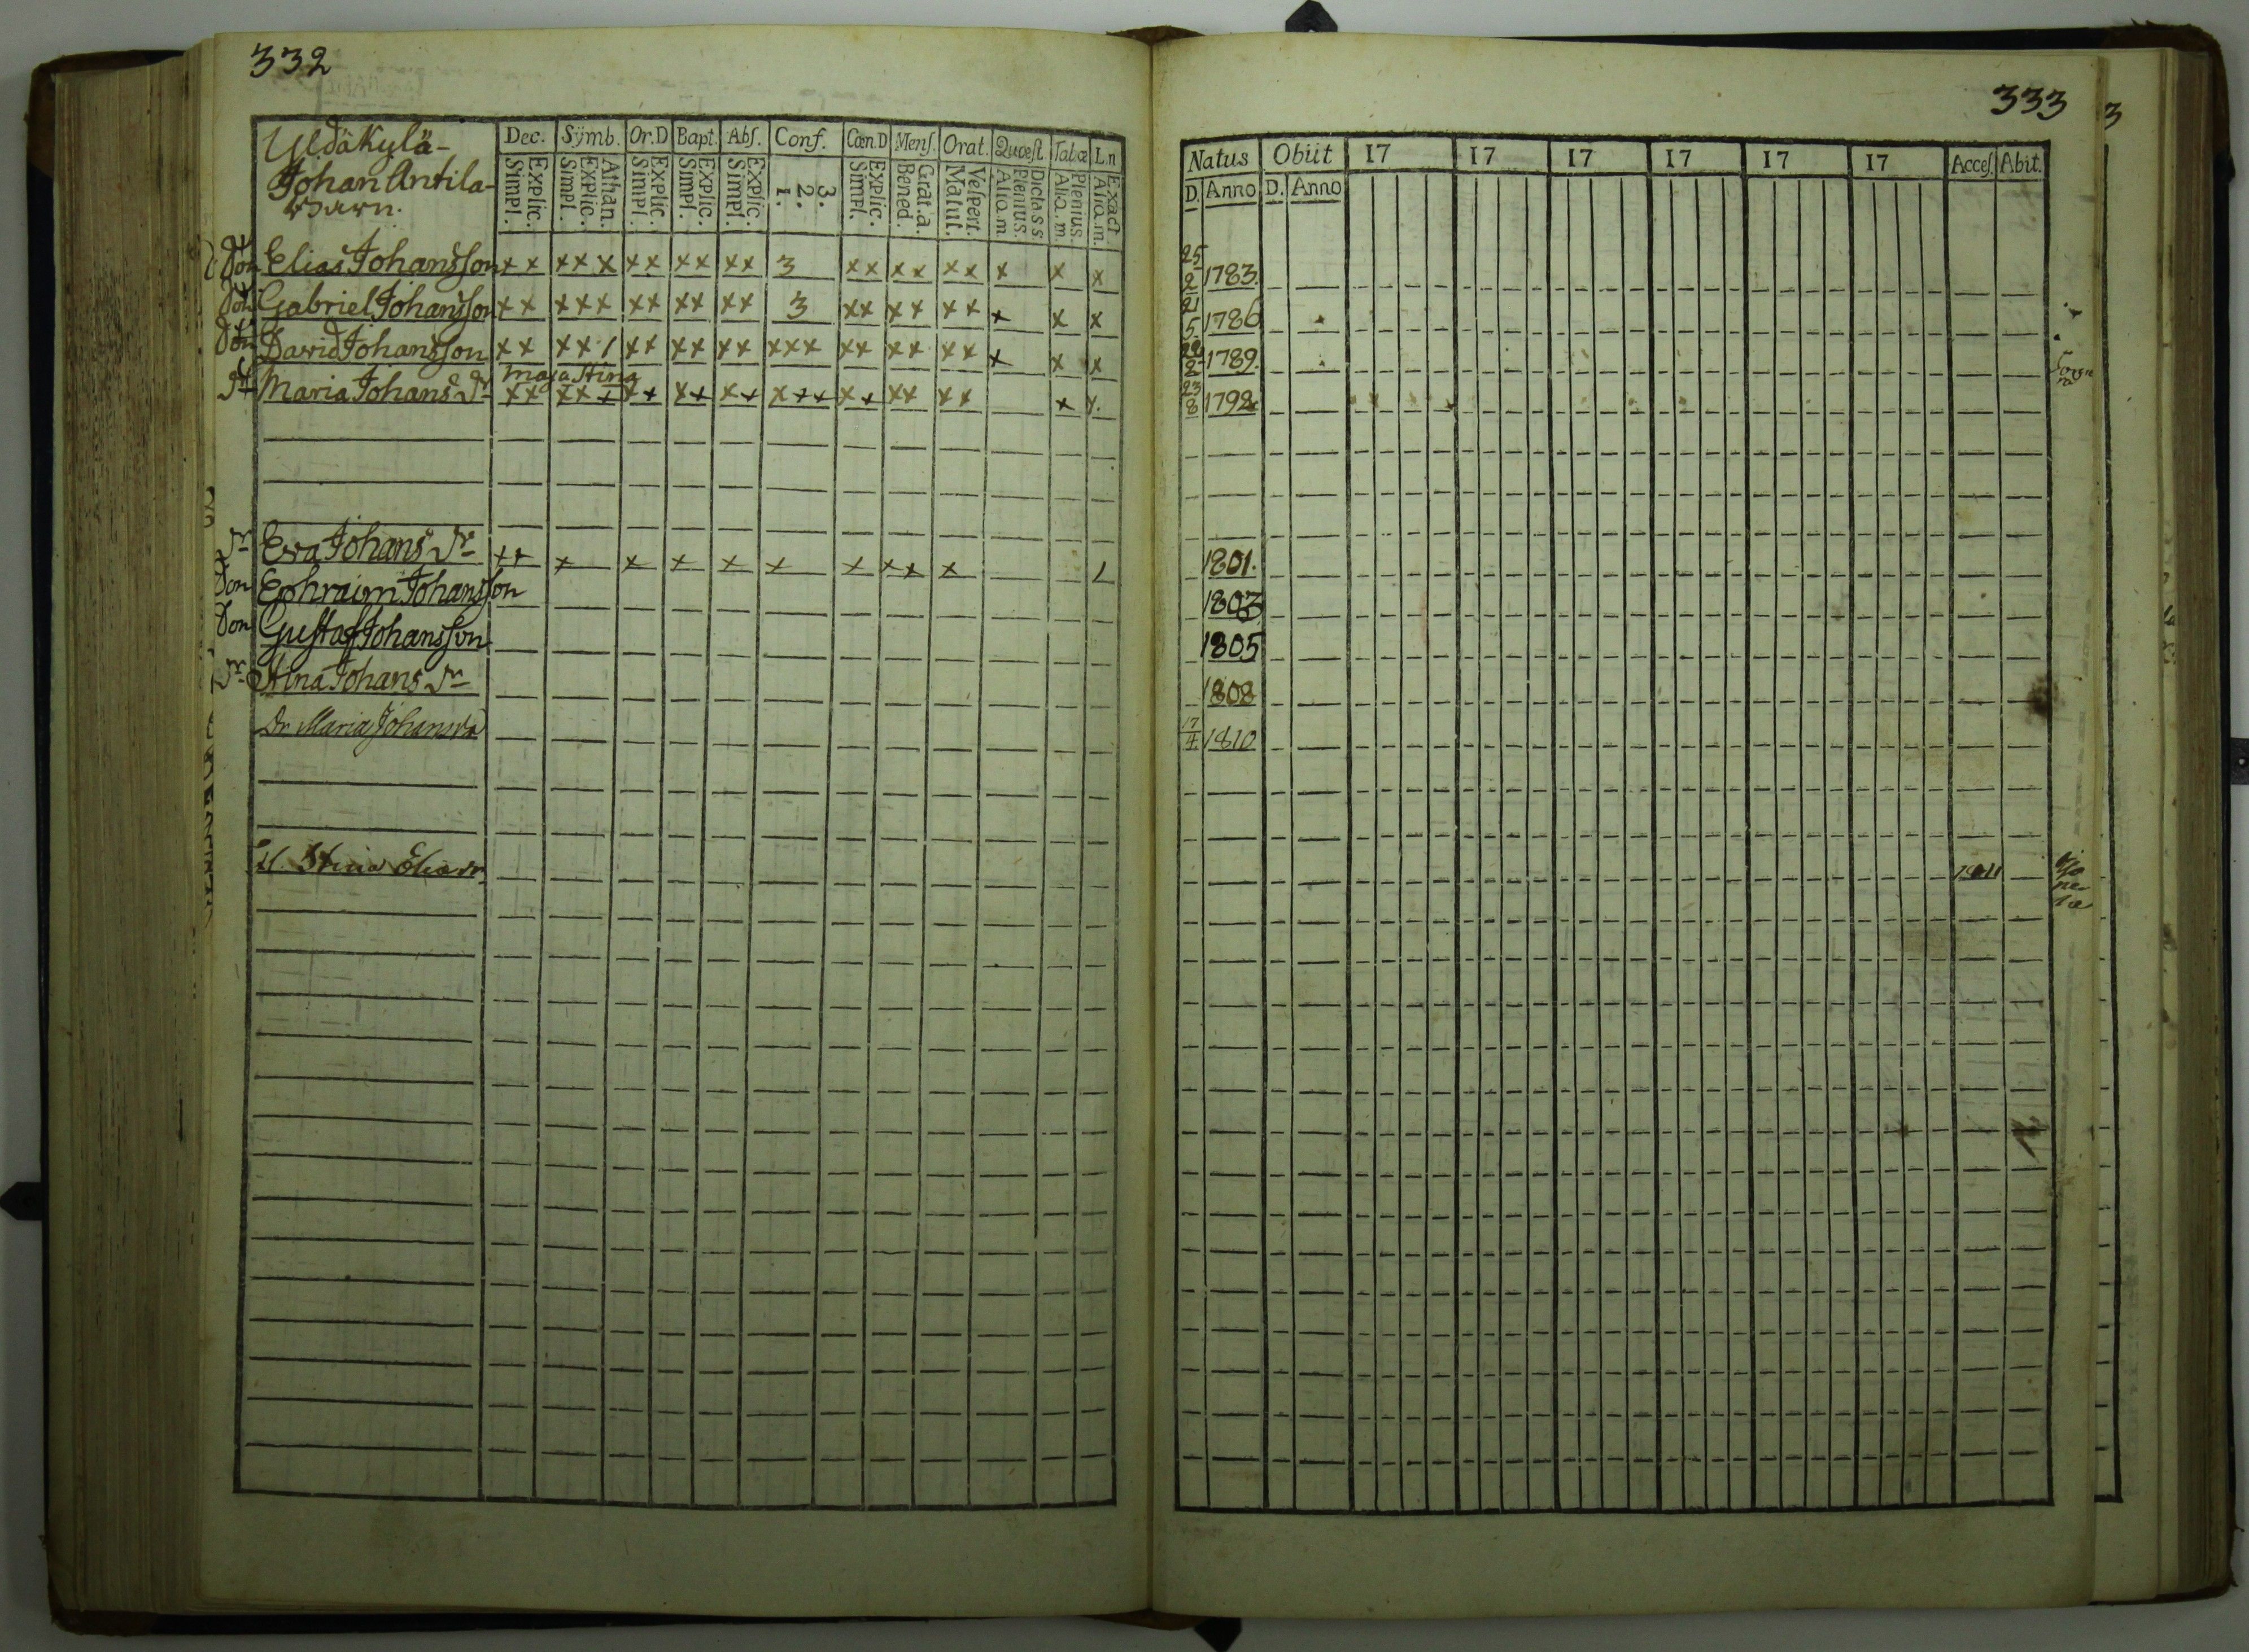 332
Dec. Sÿmb. Or.D Bapt. Abſ. Conf. Cœn.D Menſ. Orat. Quæſt. Tabæ L.n
Explic. Simpl. Athan. Explic. Simpl. Explic. Simpl. Explic. Simpl. Explic. Simpl. 3. 2. 1. Explic. Simpl. Grat.a. Bened. Veſpert. Matut. Dicta s s. Plenius. Aliq.m. Plenius. Aliq.m. Exact. Aliq.m.
Ylddäkylä-
Johan Antila-
Barn.
Son Elias Johansson xx xxx xx xx xx 3 xx xx xx x x x
Son Gabriel Johansson xx xxx xx xx xx 3 xx xx xx x x x
Son David Johansson xx xx/ xx xx xx xxx xx xx xx x x x
Maja Stina
Dr Maria Johans Dr xx xxx xx xx xx xxx xx xx xx x x.
Dr Eva Johans Dr xx x x x x x x xx x /
Son Ephraim Johansson
Son Gustaf Johansson
Dr Stina Johans Dr
Dr Maria Johansdr
H. Stina Eliasdr
333
Natus Obiit 17 17 17 17 17 17 Acceſ. Abit.
D. Anno D. Anno
25/2 1783.
21/5 1786
22/2 1789.
23/8 1792
1801.
1803
1805
1808
17/4 1810
1811
3